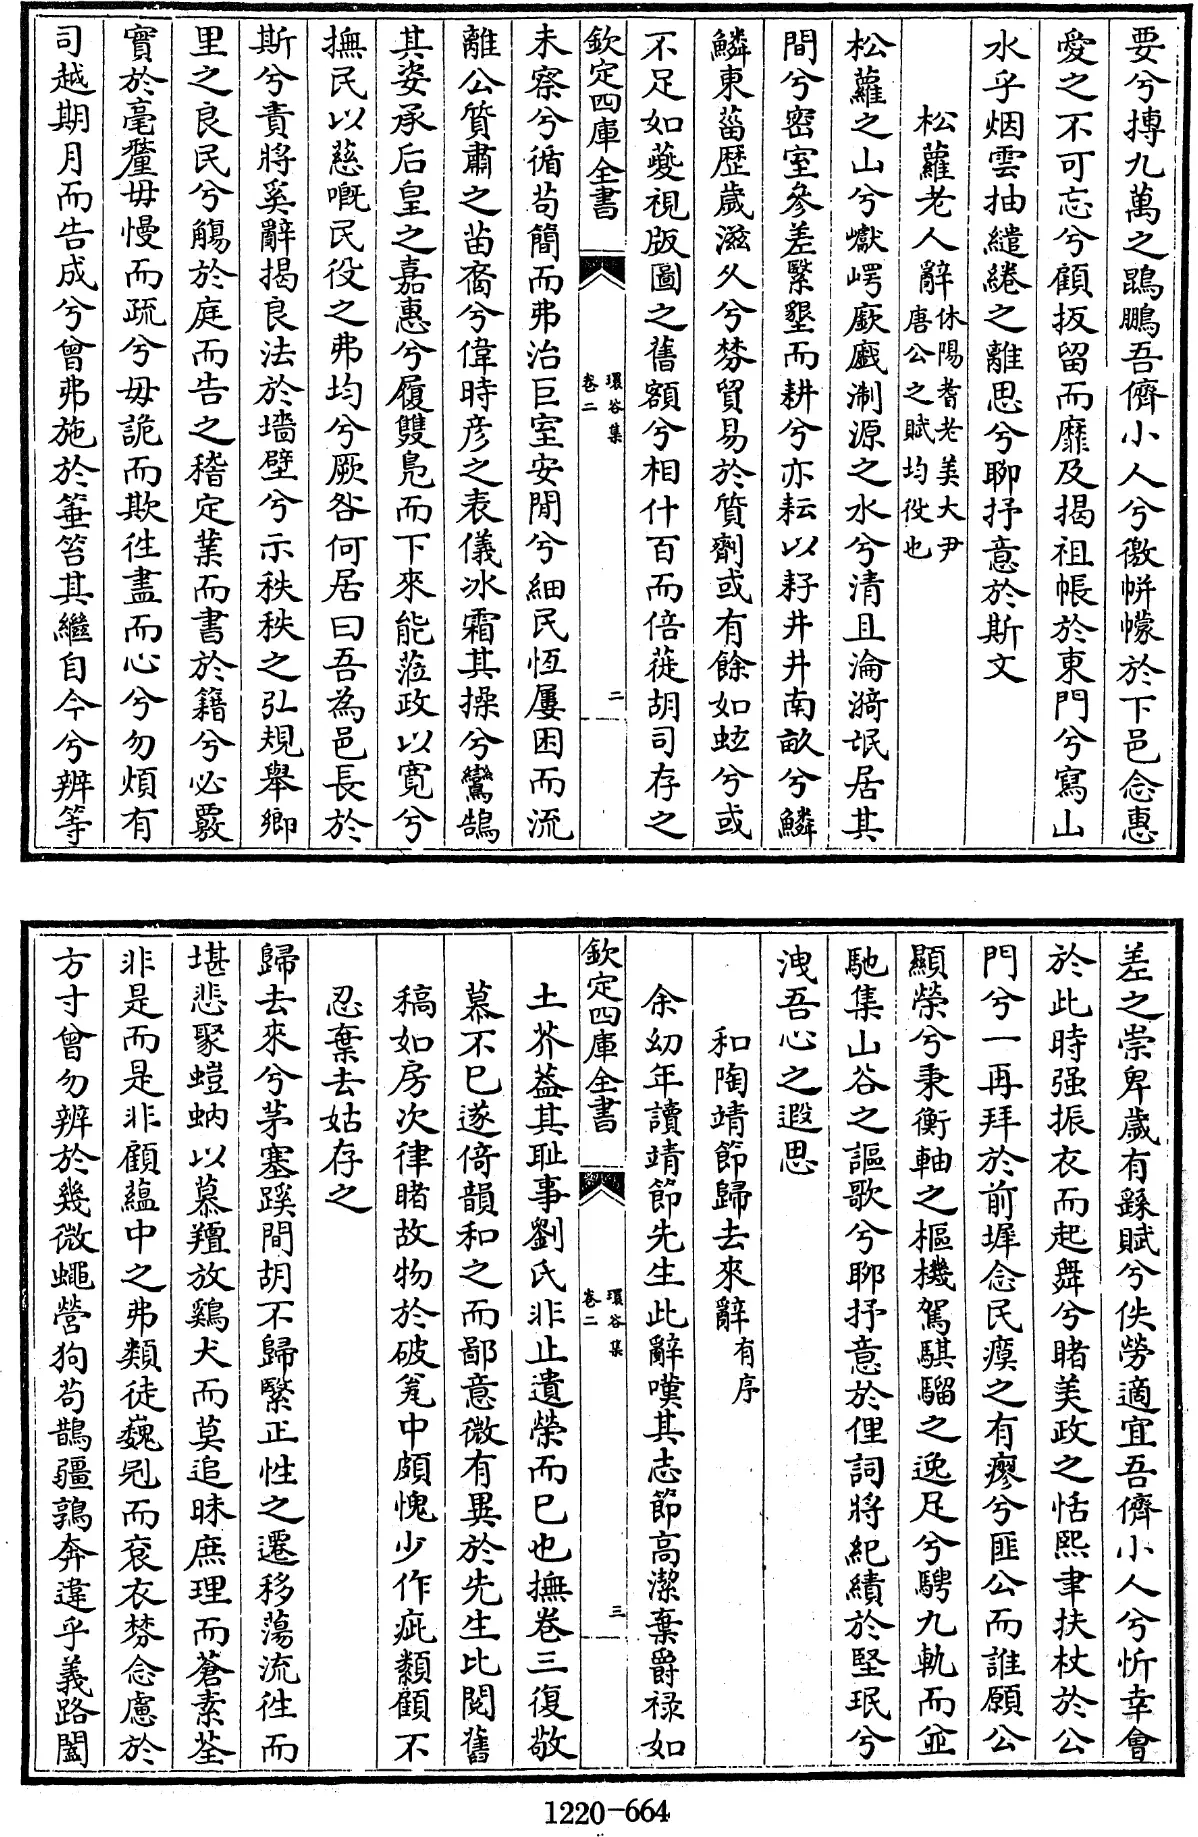 要兮摶九萬之鵾鵬吾儕小人兮徼帡幪於下邑念惠
愛之不可忘兮顧扳留而靡及揭祖帳於東門兮寫山
水乎烟雲抽繾綣之離思兮聊抒意於斯文
松蘿老人辭休陽耆老美大尹唐公之賦均役也
松蘿之山兮巘崿厥戲淛源之水兮清且淪漪氓居其
間兮密室參差緊墾而耕兮亦耘以耔井井南畝兮鱗
鱗東菑歴歲滋久兮棼貿易於質劑或有餘如蚿兮或
不足如夔視版圖之舊額兮相什百而倍蓰胡司存之
欽定四庫全書
環谷集
卷二
二
未察兮循苟簡而弗治巨室安閒兮細民恆屢困而流
離公質肅之苗裔兮偉時彦之表儀冰霜其操兮鸞鵠
其姿承后皇之嘉惠兮履雙鳬而下來能蒞政以寛兮
撫民以慈嘅民役之弗均兮厥咎何居曰吾為邑長於
斯兮責將奚辭揭良法於墻壁兮示秩秩之弘規舉鄉
里之良民兮觴於庭而告之稽定業而書於籍兮必覈
實於毫釐毋慢而疏兮毋詭而欺徃盡而心兮勿煩有
司越期月而告成兮曾弗施於箠笞其繼自今兮辨等
差之崇卑歲有繇賦兮佚勞適宜吾儕小人兮忻幸會
於此時强振衣而起舞兮睹美政之恬熙聿扶杖於公
門兮一再拜於前墀念民瘼之有瘳兮匪公而誰願公
顯榮兮秉衡軸之樞機駕騏騮之逸足兮騁九軌而並
馳集山谷之謳歌兮聊抒意於俚詞將紀績於堅珉兮
洩吾心之遐思
和陶靖節歸去來辭有序
余幼年讀靖節先生此辭嘆其志節高潔棄爵禄如
欽定四庫全書
環谷集
卷二
三
土芥葢其耻事劉氏非止遺榮而已也撫卷三復敬
慕不已遂倚韻和之而鄙意微有異於先生比閲舊
稿如房次律睹故物於破瓮中頗愧少作疵纇顧不
忍棄去姑存之
歸去來兮茅塞蹊間胡不歸緊正性之遷移蕩流徃而
堪悲聚螘蚋以慕羶放鷄犬而莫追昧庶理而蒼素荃
非是而是非顧藴中之弗類徒巍冕而衮衣棼念慮於
方寸曾勿辨於幾微蠅營狗苟鵲彊鶉奔違乎義路闔
1220-664